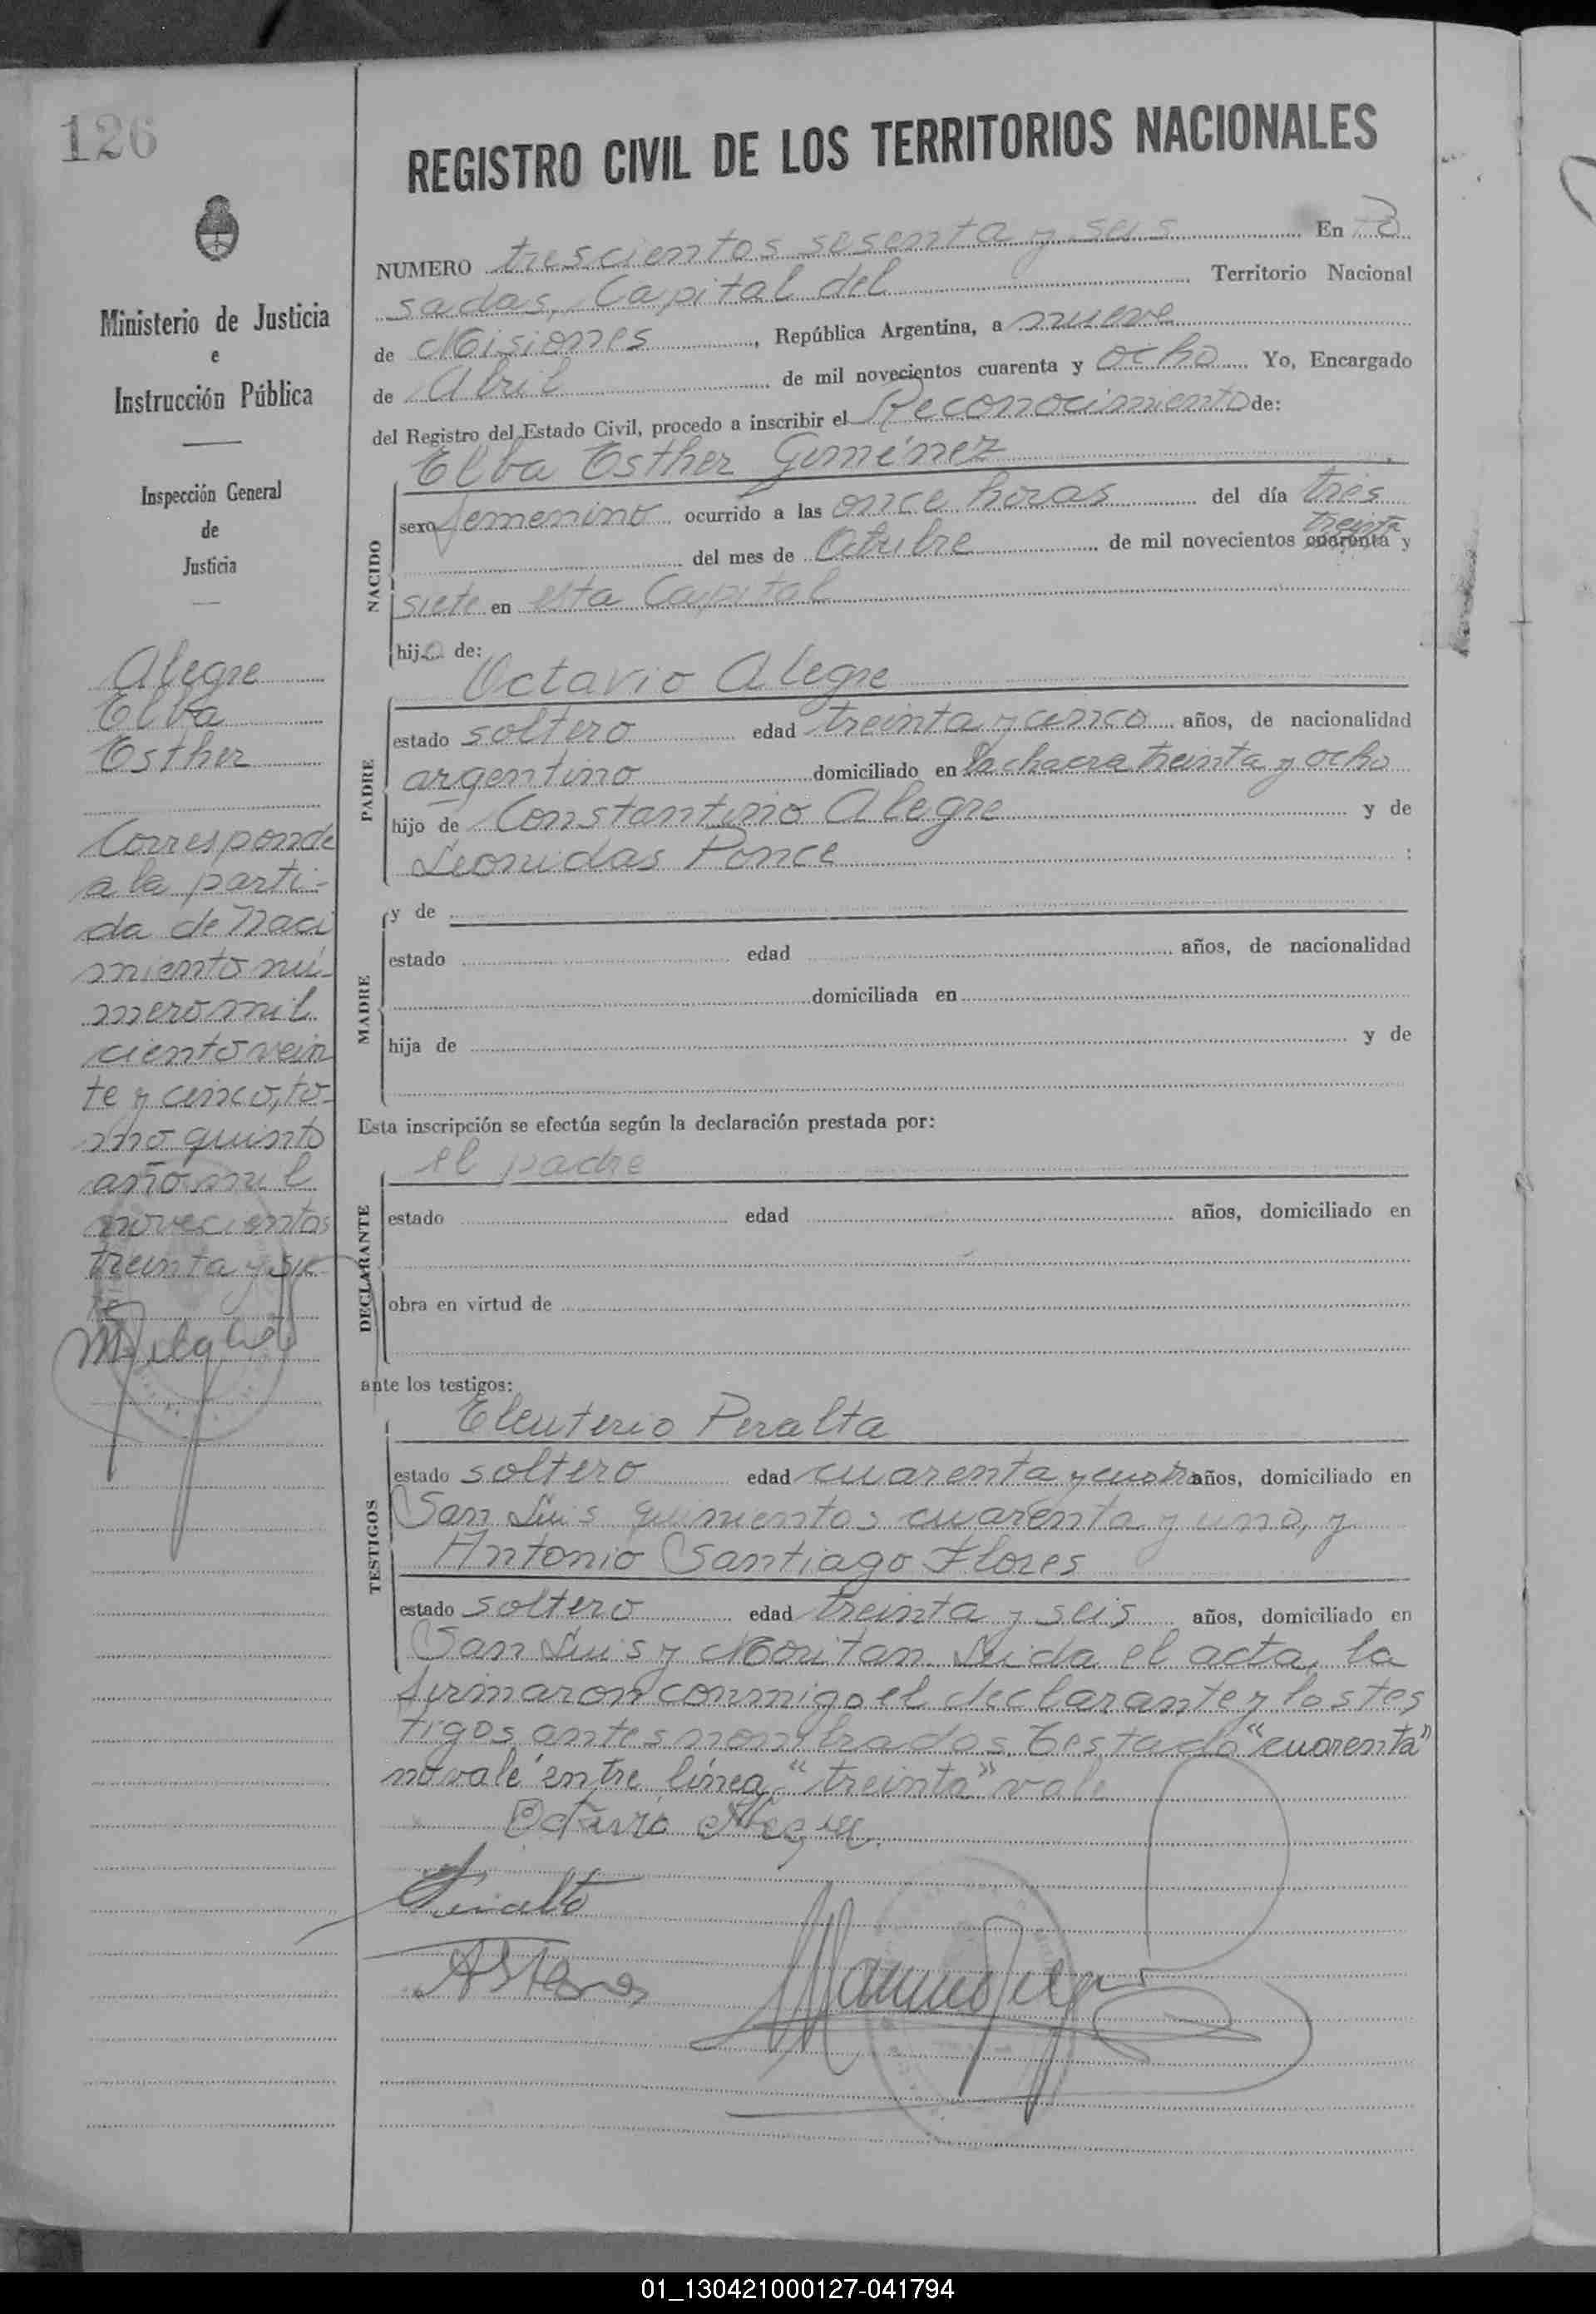 126
Ministerio de Justicia
e
Instrucción Pública
Inspección General
de
Justicia
Alegre
Elba
Esther
Corresponde
a la parti-
da de naci
miento nú-
mero mil
ciento vein
te y cinco, to-
mo quinto
año mil
novecientos
treinta y sie
te
REGISTRO CIVIL DE LOS TERRITORIOS NACIONALES
NUMERO trescientos sesenta y seis En Po
sadas, Capital del Territorio Nacional
de Misiones, República Argentina, a nueve
de Abril de mil novecientos cuarenta y ocho Yo, Encargado
del Registro del Estado Civil, procedo a inscribir el Reconocimiento de:
Elba Esther Giménez
NACIDO
sexo femenino ocurrido a las once horas del día tres
treinta
del mes de Octubre de mil novecientos cuarenta y
siete en esta Capital
hija de:
Octavio Alegre
PADRE
estado soltero edad treinta y cinco años, de nacionalidad
argentino domiciliado en la chacra treinta y ocho
hijo de Constantino Alegre y de
Leonidas Ponce :
MADRE
y de
estado edad años, de nacionalidad
domiciliada en
hija de y de
Esta inscripción se efectúa según la declaración prestada por:
el padre
DECLARANTE
estado edad años, domiciliado en
obra en virtud de
ante los testigos:
Eleuterio Peralta
TESTIGOS
estado soltero edad cuarenta y cuatro años, domiciliado en
San Luis quinientos cuarenta y uno, y
Antonio Santiago Flores
estado soltero edad treinta y seis años, domiciliado en
San Luis y Moritan. Leida el acta, la
firmaron conmigo el declarante y los tes
tigos antes nombrados. Testado "cuarenta"
no vale entre línea "treinta" vale
Octavio Alegre.
Peralta
ASFlores
01_130421000127-041794